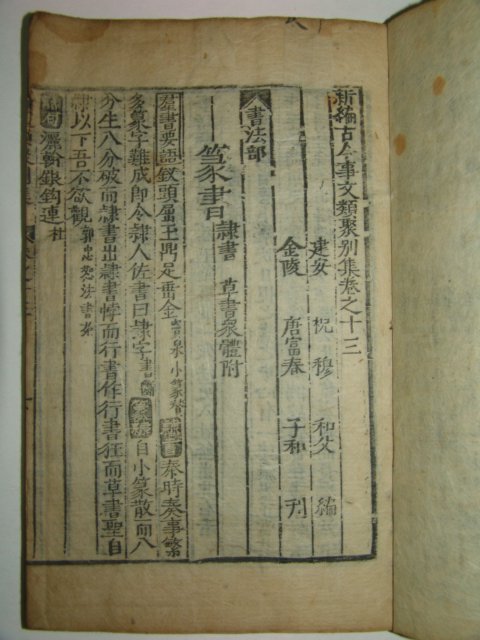 新編古今事文類聚別集卷之十三
建安 祝穆 和父 編
金陵 唐富春 子和 刊
書法部
篆書 隸書 草書衆體附
羣書要語 釵頭屈玉鼎足垂金 小篆贊 秦時奏事繁
多篆字難成即令隸人佐書曰隸字 自小篆散而八
分生八分破而隸書出隸書悖而行書作行書狂而草書聖自
隸以下吾不欲觀 郭忠恕法書
灑翰銀鉤連 杜